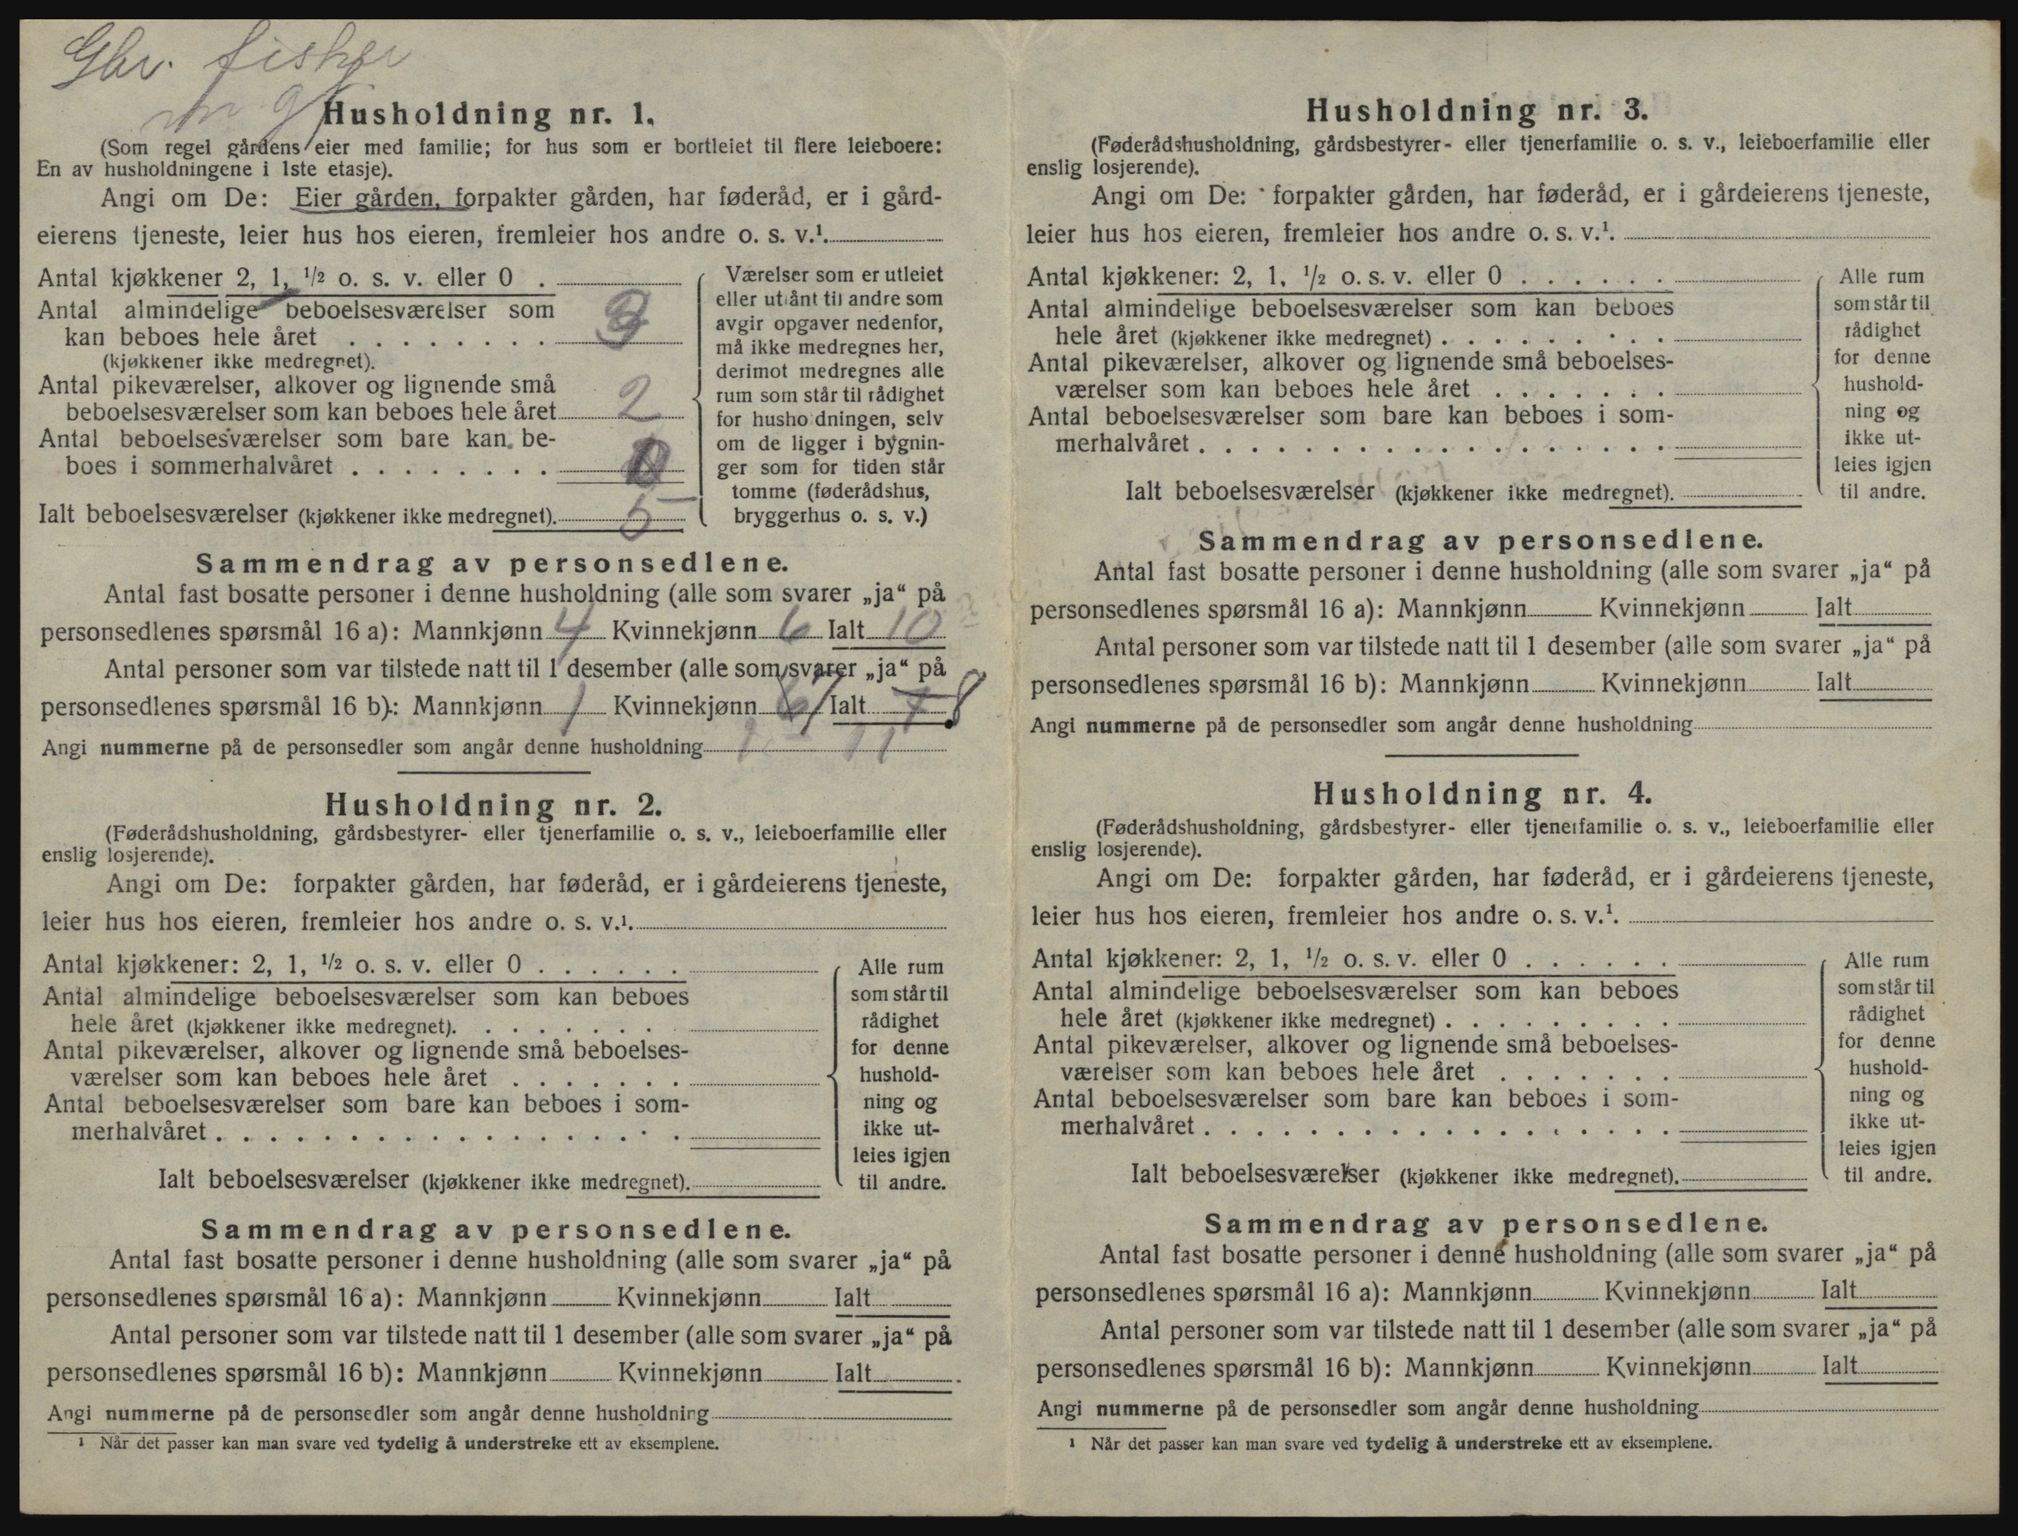 Gbr. fisker
Husholdning nr. 1.
(Som regel gårdens eier med familie; for hus som er bortleiet til flere leieboere:
En av husholdningene i 1ste etasje).
Angi om De: Eier gården, forpakter gården, har føderåd, er i gård-
eierens tjeneste, leier hus hos eieren, fremleier hos andre o. s. v.¹.
Antal kjøkkener 2, 1, ½ o. s. v. eller 0 .
Antal almindelige beboelsesværelser som
kan beboes hele året . . . . . . . . 3
(kjøkkener ikke medregnet).
Antal pikeværelser, alkover og lignende små
beboelsesværelser som kan beboes hele året 2
Antal beboelsesværelser som bare kan be-
boes i sommerhalvåret . . . . . . . . 0
Ialt beboelsesværelser (kjøkkener ikke medregnet). 5
Værelser som er utleiet
eller utlånt til andre som
avgir opgaver nedenfor,
må ikke medregnes her,
derimot medregnes alle
rum som står til rådighet
for husho dningen, selv
om de ligger i bygnin-
ger som for tiden står
tomme (føderådshus,
bryggerhus o. s. v.)
Sammendrag av personsedlene.
Antal fast bosatte personer i denne husholdning (alle som svarer „ja“ på
personsedlenes spørsmål 16 a): Mannkjønn 4 Kvinnekjønn 6 Ialt 10
Antal personer som var tilstede natt til 1 desember (alle som svarer „ja“ på
personsedlenes spørsmål 16 b): Mannkjønn 1 Kvinnekjønn 6 7 Ialt 7 8
Angi nummerne på de personsedler som angår denne husholdning 1 - 11
Husholdning nr. 2.
(Føderådshusholdning, gårdsbestyrer- eller tjenerfamilie o. s. v., leieboerfamilie eller
enslig losjerende).
Angi om De: forpakter gården, har føderåd, er i gårdeierens tjeneste,
leier hus hos eieren, fremleier hos andre o. s. v.¹.
Antal kjøkkener: 2, 1, ½ o. s. v. eller 0 . . . . . .
Antal almindelige beboelsesværelser som kan beboes
hele året (kjøkkener ikke medregnet). . . . . . . .
Antal pikeværelser, alkover og lignende små beboelses-
værelser som kan beboes hele året . . . . . . .
Antal beboelsesværelser som bare kan beboes i som-
merhalvåret . . . . . . . . . . . . . . . . . .
Ialt beboelsesværelser (kjøkkener ikke medregnet).
Alle rum
som står til
rådighet
for denne
hushold-
ning og
ikke ut-
leies igjen
til andre.
Sammendrag av personsedlene.
Antal fast bosatte personer i denne husholdning (alle som svarer „ja“ på
personsedlenes spørsmål 16 a): Mannkjønn Kvinnekjønn Ialt
Antal personer som var tilstede natt til 1 desember (alle som svarer „ja“ på
personsedlenes spørsmål 16 b): Mannkjønn Kvinnekjønn Ialt
Angi nummerne på de personsedler som angår denne husholdning
¹ Når det passer kan man svare ved tydelig å understreke ett av eksemplene.
Husholdning nr. 3.
(Føderådshusholdning, gårdsbestyrer- eller tjenerfamilie o. s. v., leieboerfamilie eller
enslig losjerende).
Angi om De: forpakter gården, har føderåd, er i gårdeierens tjeneste,
leier hus hos eieren, fremleier hos andre o. s. v.¹.
Antal kjøkkener: 2, 1, ½ o. s. v. eller 0 . . . . . .
Antal almindelige beboelsesværelser som kan beboes
hele året (kjøkkener ikke medregnet) . . . . . . . . .
Antal pikeværelser, alkover og lignende små beboelses-
værelser som kan beboes hele året . . . . . . .
Antal beboelsesværelser som bare kan beboes i som-
merhalvåret . . . . . . . . . . . . . . . . . .
Ialt beboelsesværelser (kjøkkener ikke medregnet).
Alle rum
som står til
rådighet
for denne
hushold-
ning og
ikke ut-
leies igjen
til andre.
Sammendrag av personsedlene.
Antal fast bosatte personer i denne husholdning (alle som svarer „ja“ på
personsedlenes spørsmål 16 a): Mannkjønn Kvinnekjønn Ialt
Antal personer som var tilstede natt til 1 desember (alle som svarer „ja“ på
personsedlenes spørsmål 16 b): Mannkjønn Kvinnekjønn Ialt
Angi nummerne på de personsedler som angår denne husholdning
Husholdning nr. 4.
(Føderådshusholdning, gårdsbestyrer- eller tjenerfamilie o. s. v., leieboerfamilie eller
enslig losjerende).
Angi om De: forpakter gården, har føderåd, er i gårdeierens tjeneste,
leier hus hos eieren, fremleier hos andre o. s. v.¹.
Antal kjøkkener: 2, 1, ½ o. s. v. eller 0 . . . . . .
Antal almindelige beboelsesværelser som kan beboes
hele året (kjøkkener ikke medregnet) . . . . . . . . .
Antal pikeværelser, alkover og lignende små beboelses-
værelser som kan beboes hele året . . . . . . .
Antal beboelsesværelser som bare kan beboes i som-
merhalvåret . . . . . . . . . . . . . . . . . .
Ialt beboelsesværelser (kjøkkener ikke medregnet).
Alle rum
som står til
rådighet
for denne
hushold-
ning og
ikke ut-
leies igjen
til andre.
Sammendrag av personsedlene.
Antal fast bosatte personer i denne husholdning (alle som svarer „ja“ på
personsedlenes spørsmål 16 a): Mannkjønn Kvinnekjønn Ialt
Antal personer som var tilstede natt til 1 desember (alle som svarer „ja“ på
personsedlenes spørsmål 16 b): Mannkjønn Kvinnekjønn Ialt
Angi nummerne på de personsedler som angår denne husholdning
¹ Når det passer kan man svare ved tydelig å understreke ett av eksemplene.